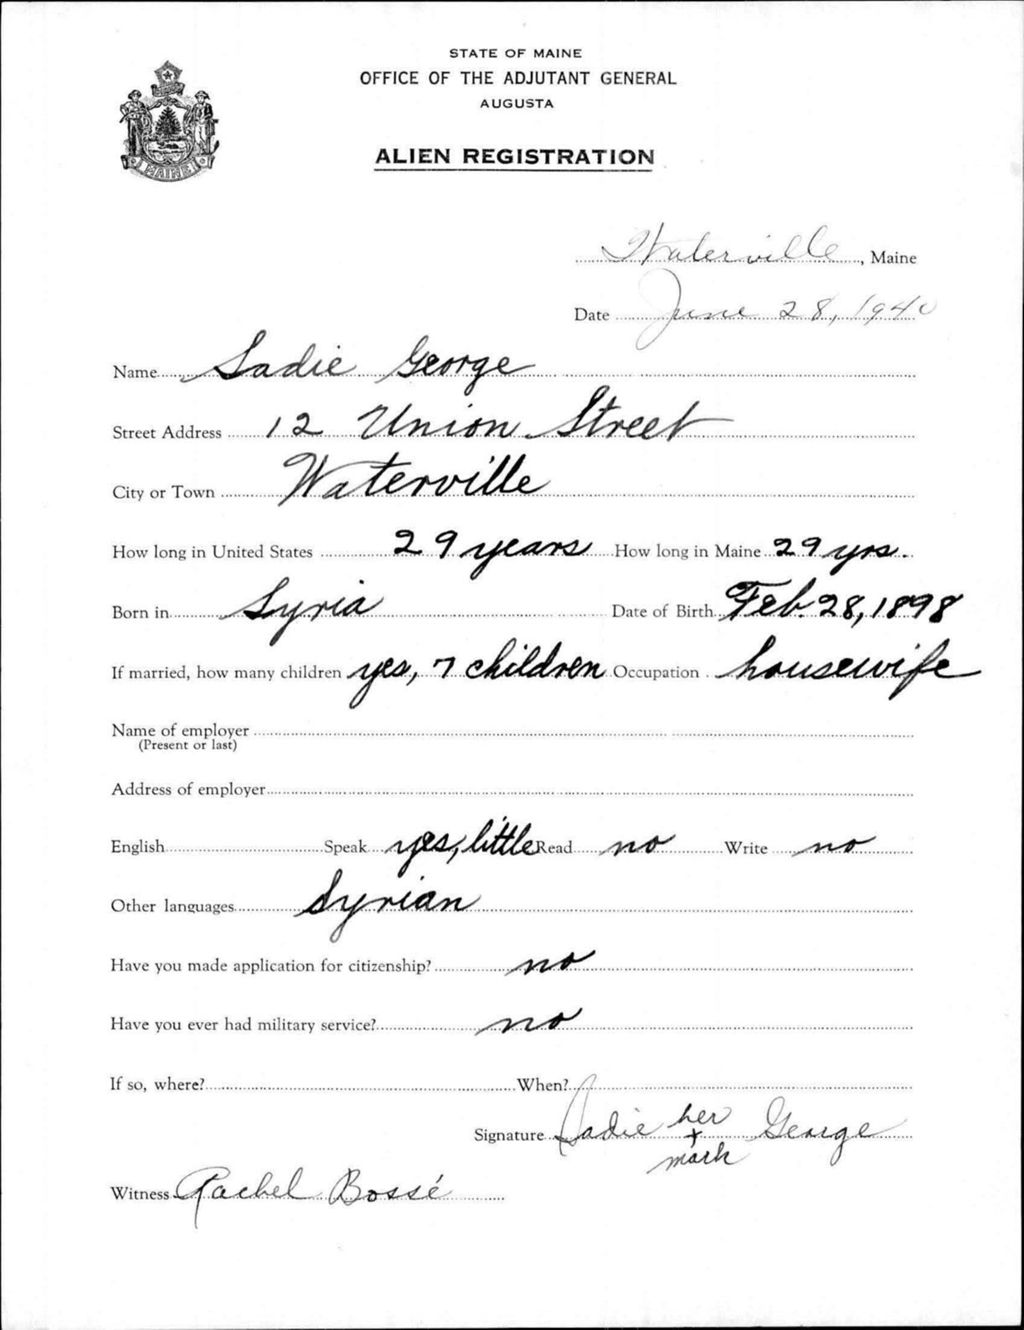 STATE OF MAINE
OFFICE OF THE ADJUTANT GENERAL
AUGUSTA
ALIEN REGISTRATION
MAINE
Waterville, Maine
Date June 28, 1940
Name Sadie George
Street Address 12 Union Street
City or Town Waterville
How long in United States 29 years How long in Maine 29 yrs.
Born in Syria Date of Birth Feb. 28, 1898
If married, how many children yes, 7 children Occupation housewife
Name of employer
(Present or last)
Address of employer
English Speak yes, little Read no Write no
Other languages Syrian
Have you made application for citizenship? no
Have you ever had military service? no
If so, where? When?
her
Signature Sadie + George
mark
Witness Rachel Bossé